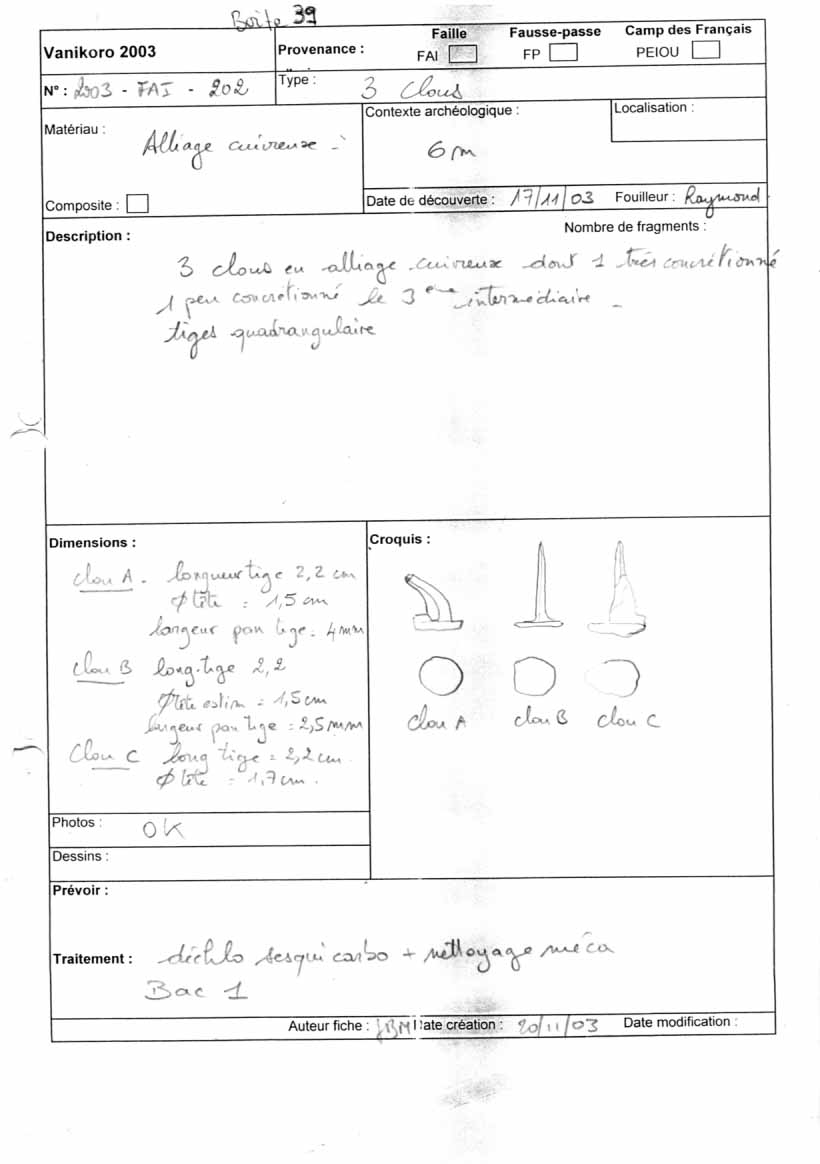 Boite 39
Vanikoro 2003
Provenance :
Faille
FAI
Fausse-passe
FP
Camp des Français
PEIOU
N° : 2003 - FAI - 202
Type : 3 clous
Matériau : Alliage cuivreux -
Composite :
Contexte archéologique :
6 m
Localisation :
Date de découverte : 17/11/03
Fouilleur : Raymond
Description :
Nombre de fragments :
3 clous en alliage cuivreux dont 1 très concrétionné
1 peu concrétionné le 3 eme intermédiaire -
tiges quadrangulaire
Dimensions :
clou A - longueur tige 2,2 cm
Φ tête = 1,5 cm
largeur pan tige = 4 mm
clou B long. tige 2,2
Φ tête estim = 1,5 cm
largeur pan tige = 2,5 mm
Clou C long tige = 2,2 cm.
Φ tête = 1,7 cm.
Croquis :
clou A clou B clou C
Photos : OK
Dessins :
Prévoir :
Traitement : déchlo sesqui carbo + nettoyage méca
Bac 1
Auteur fiche : JBM
ate création : 20/11/03
Date modification :